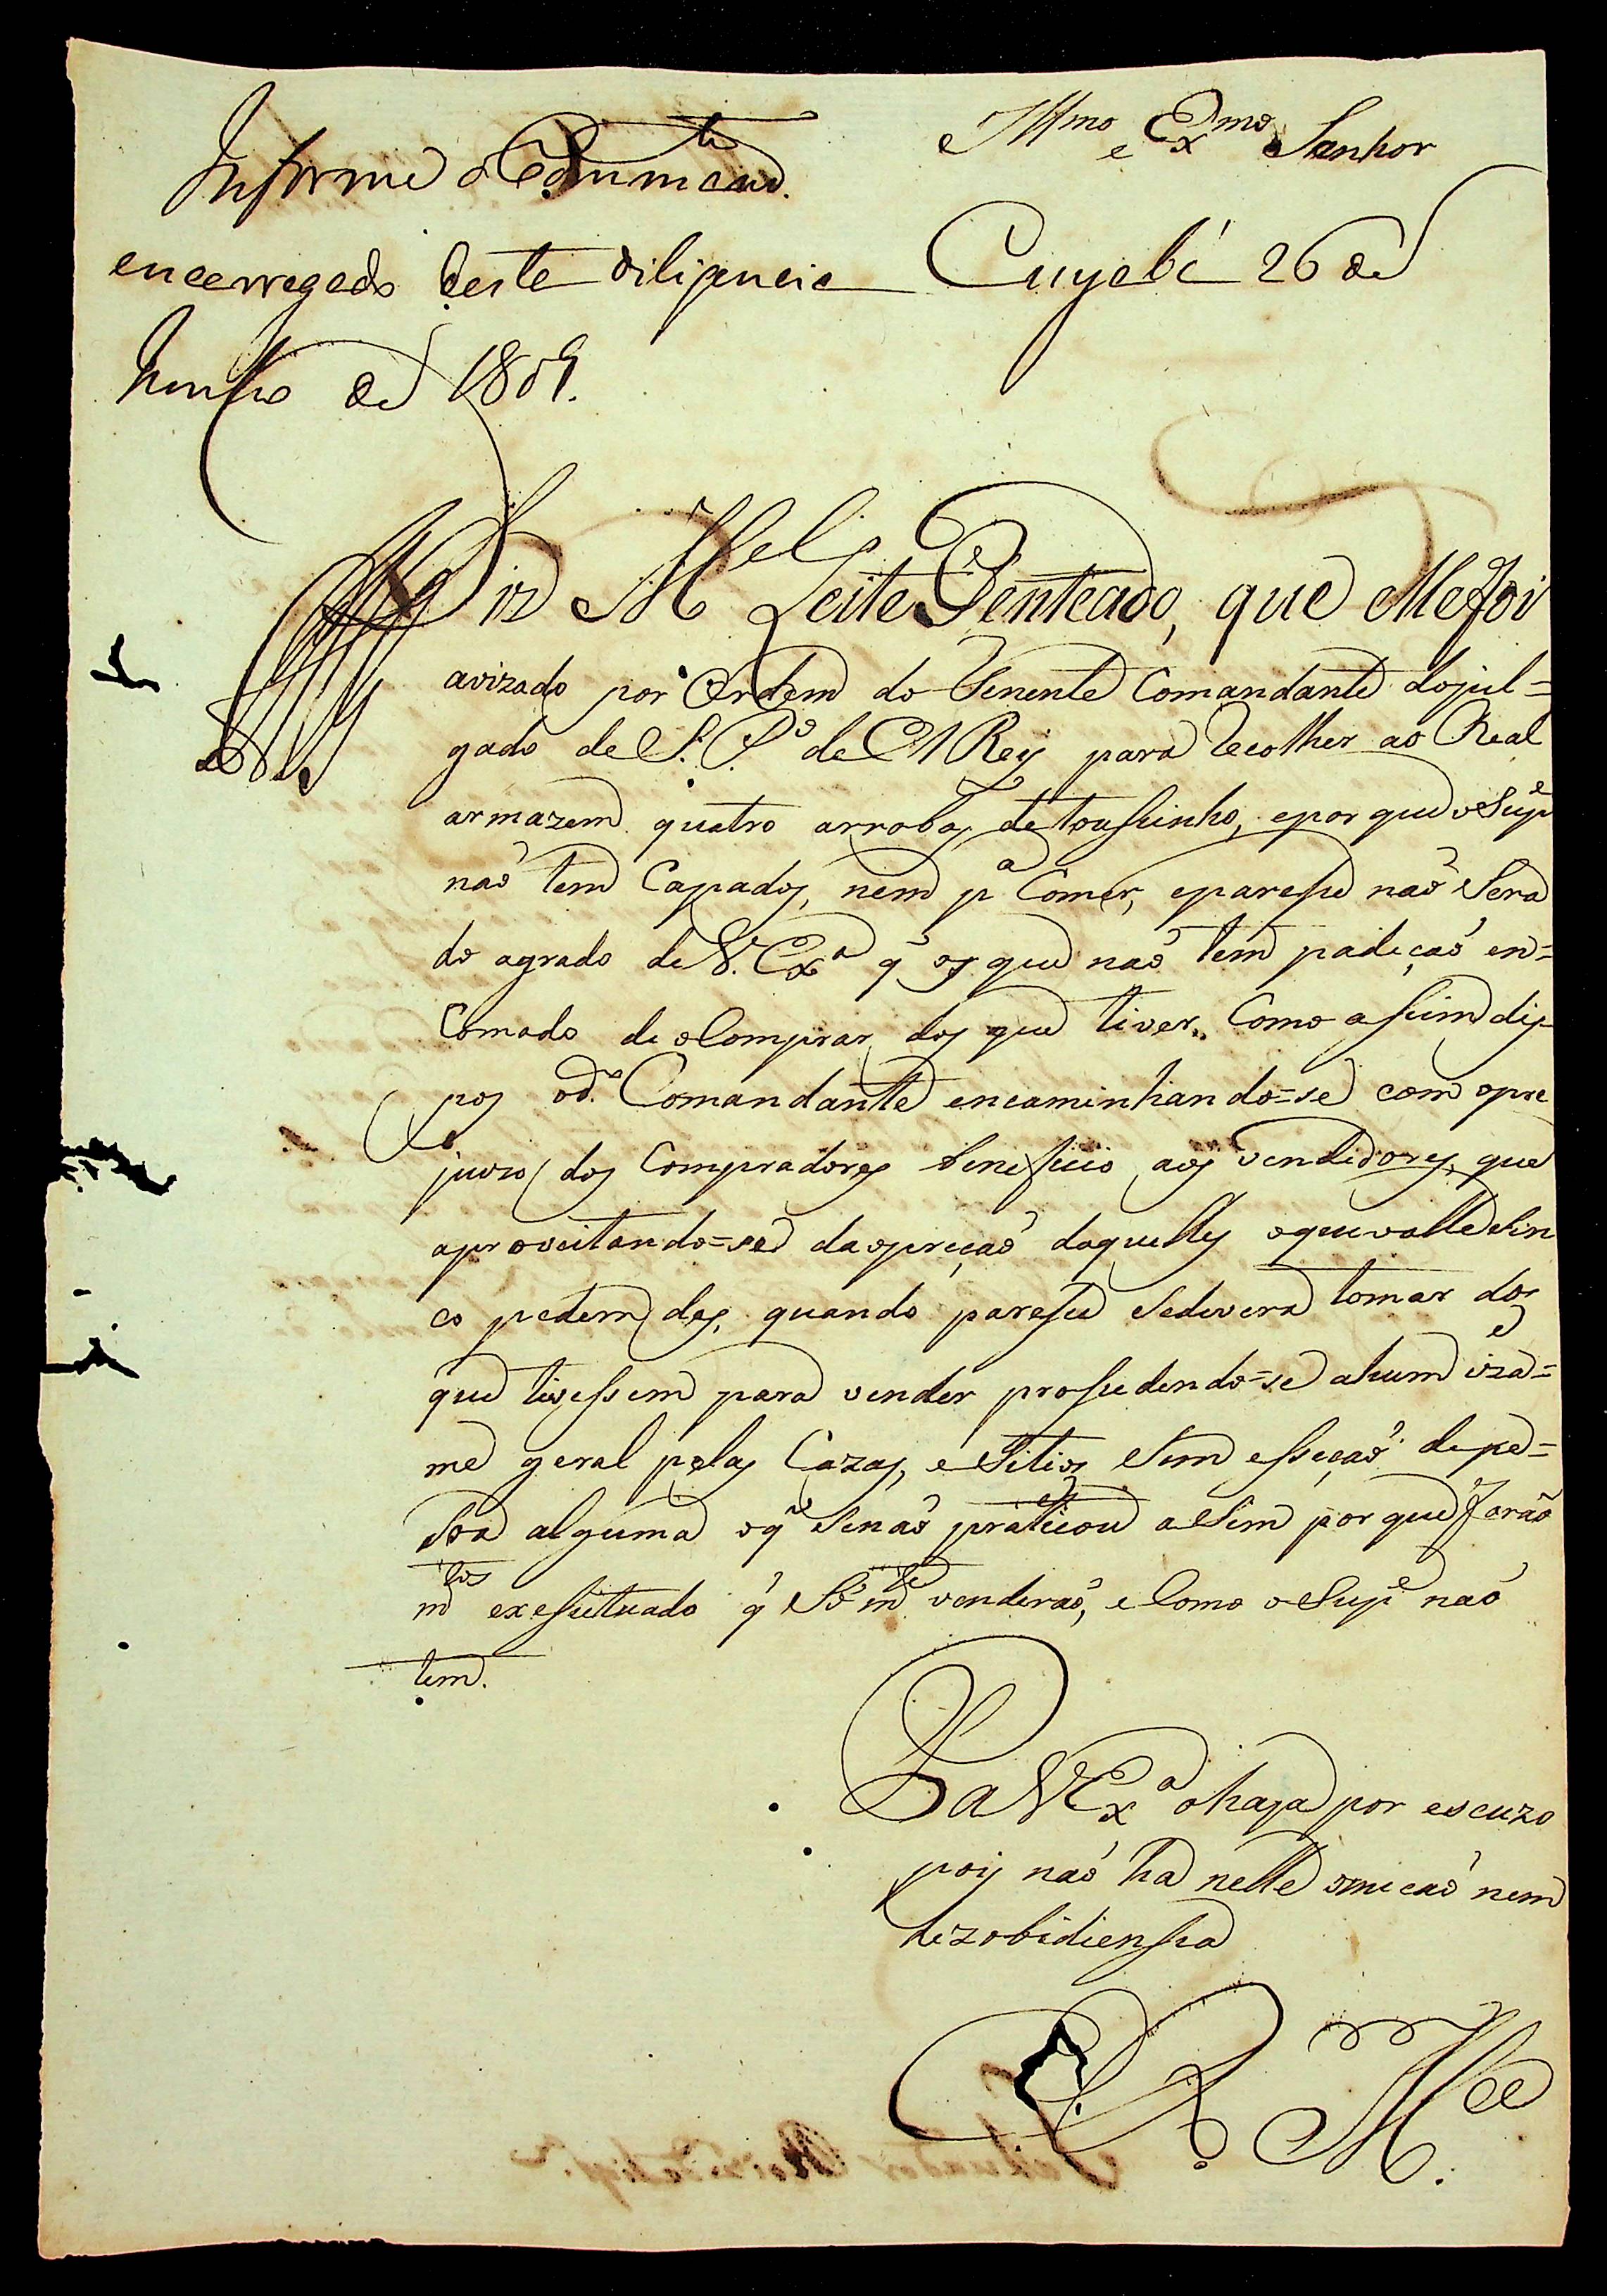 Illmo e Exmo Senhor
Informe o Commandte
encarregado desta diligencia Cuyabá 26 de
Junho de 1809.
Diz Mel Leite Penteado, que Mefoi
avizado por Ordem do Tenente Comandante dojul=
gado de S. P.o de ElRey para recolher ao Real
armazem quatro arrobas detousinho, eporque oSupe
naõ tem Capados, nem pa Comer, eparese naõ Sera
do agrado de V. Exa q os que naõ tem padeçaõ en=
Comodo de oComprar dos que tiver. Como assim dis
pos od.o Comandante encaminhando=se com opre
juizo dos Compradores beneficio aos vendedores, que
aproveitando=se daopreçaõ daquelles oquevalle Sin
co pedem des, quando parese Sedevera tomar dos
que tivessem para vender prosedendo=se ahum iza=
me geral pelas Cazas, e Sitios Sem esseçaõ depe=
Soa alguma oqe Senaõ praticou aSim porque foraõ
mtos exesetuado q Só mte venderaõ, e Como oSupe naõ
tem.
Pa VExa ohaja por escuzo
pois naõ ha nelle omicaõ nem
dezobidiensia
E R Mce